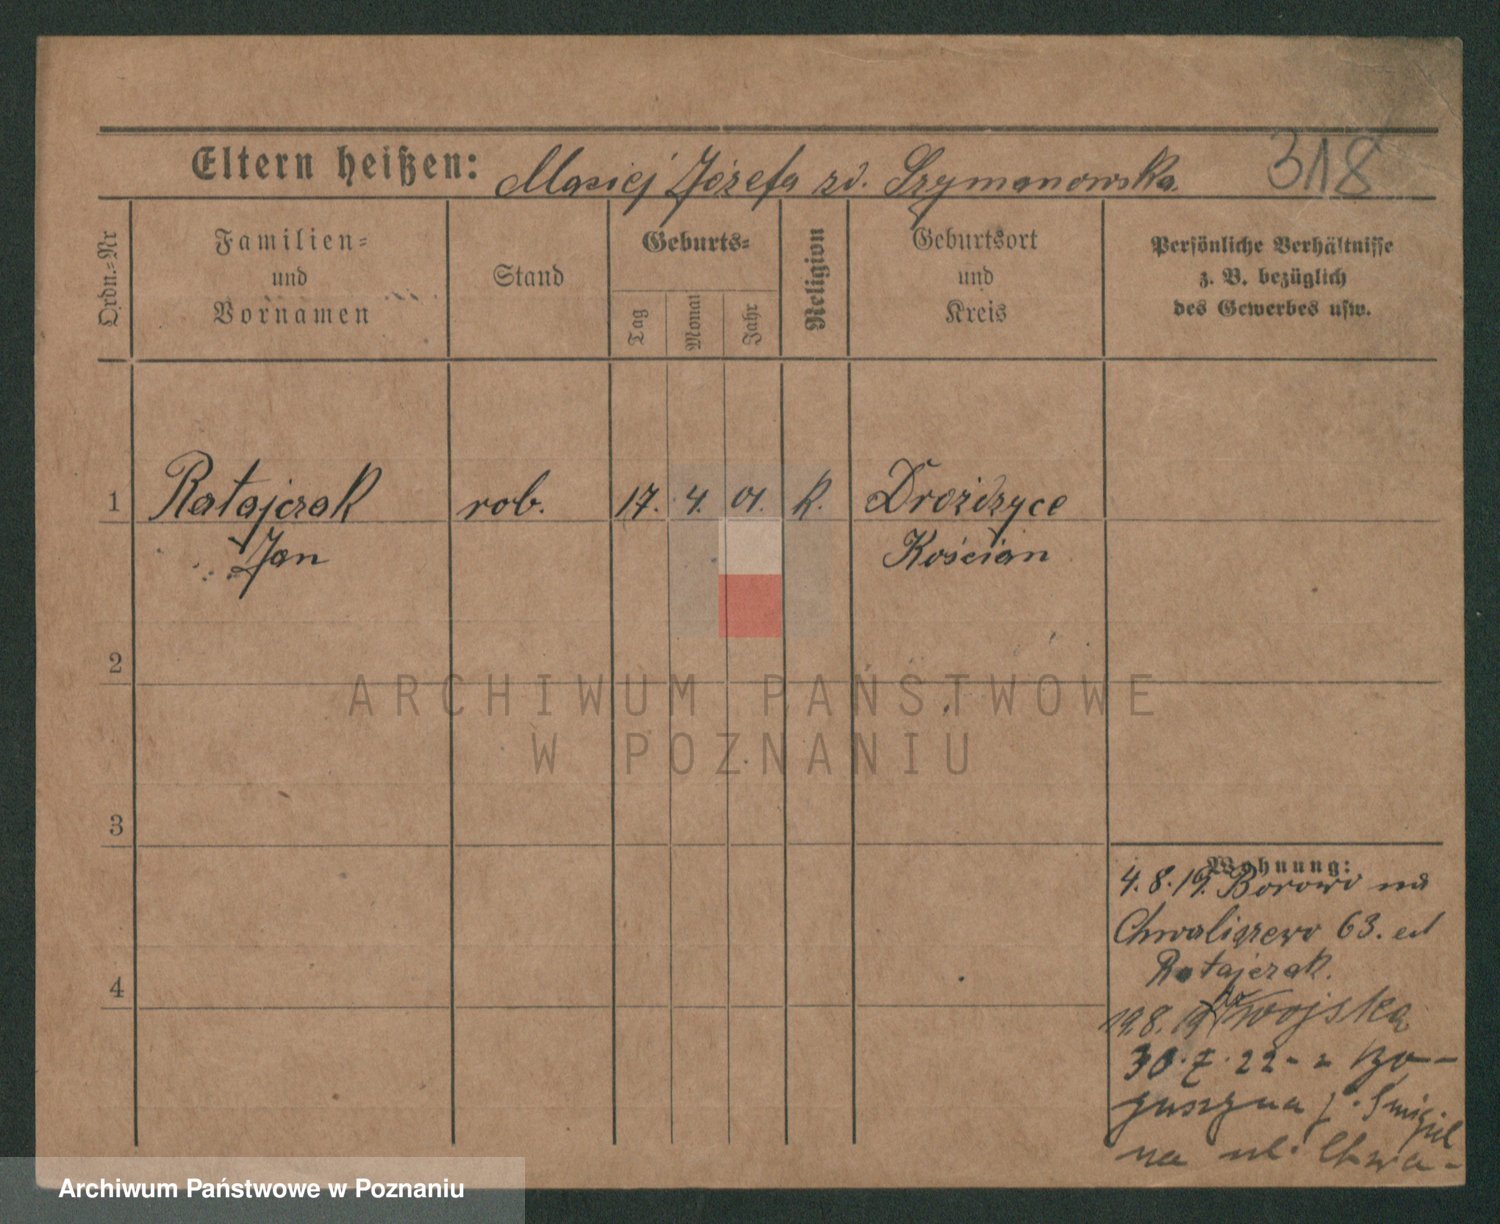 318
Eltern heißen: Maciej Józefa zd. Szymanowska
Ordn.=Nr
Familien=
und
Vornamen
Stand
Geburts=
Tag
Monat
Jahr
Religion
Geburtsort
und
Kreis
Persönliche Verhältnisse
z. B. bezüglich
des Gewerbes usw.
1 Ratajczak rob. 17. 4. 01. k. Drożdzyce
Jan Kościan
2
3
4
Wohnung:
4.8.19. Borowo na
Chwaliszewo 63.
Ratajczak.
19.8.19 do wojska
30.7.22 - z Bo-
guszyna p. Śmigiel
na ul. Chwa-
ARCHIWUM PAŃSTWOWE
W POZNANIU
Archiwum Państwowe w Poznaniu